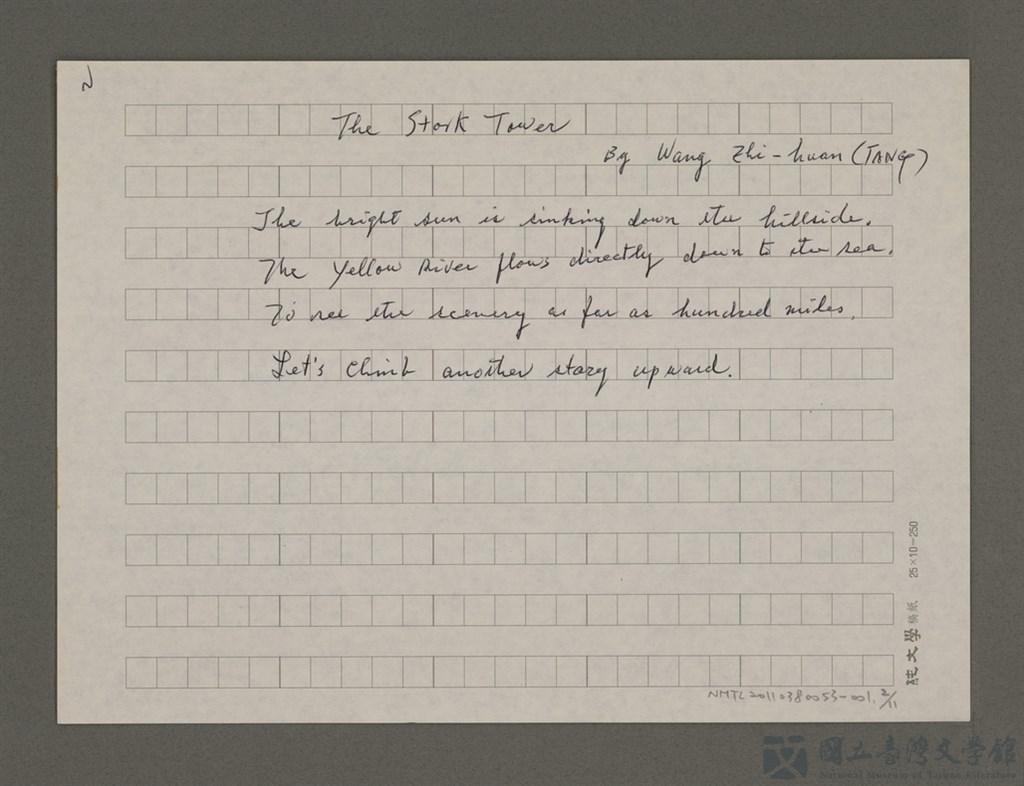 2
The Stork Tower
By Wang Zhi-huan (TANG)
The bright sun is sinking down the hillside.
The Yellow River flows directly down to the sea.
To see the scenery as far as hundred miles,
Let's climb another story upward.
純文學 稿紙 25×10=250
NMTL20110380053-001. 2/11
國立臺灣文學館
National Museum of Taiwan Literature